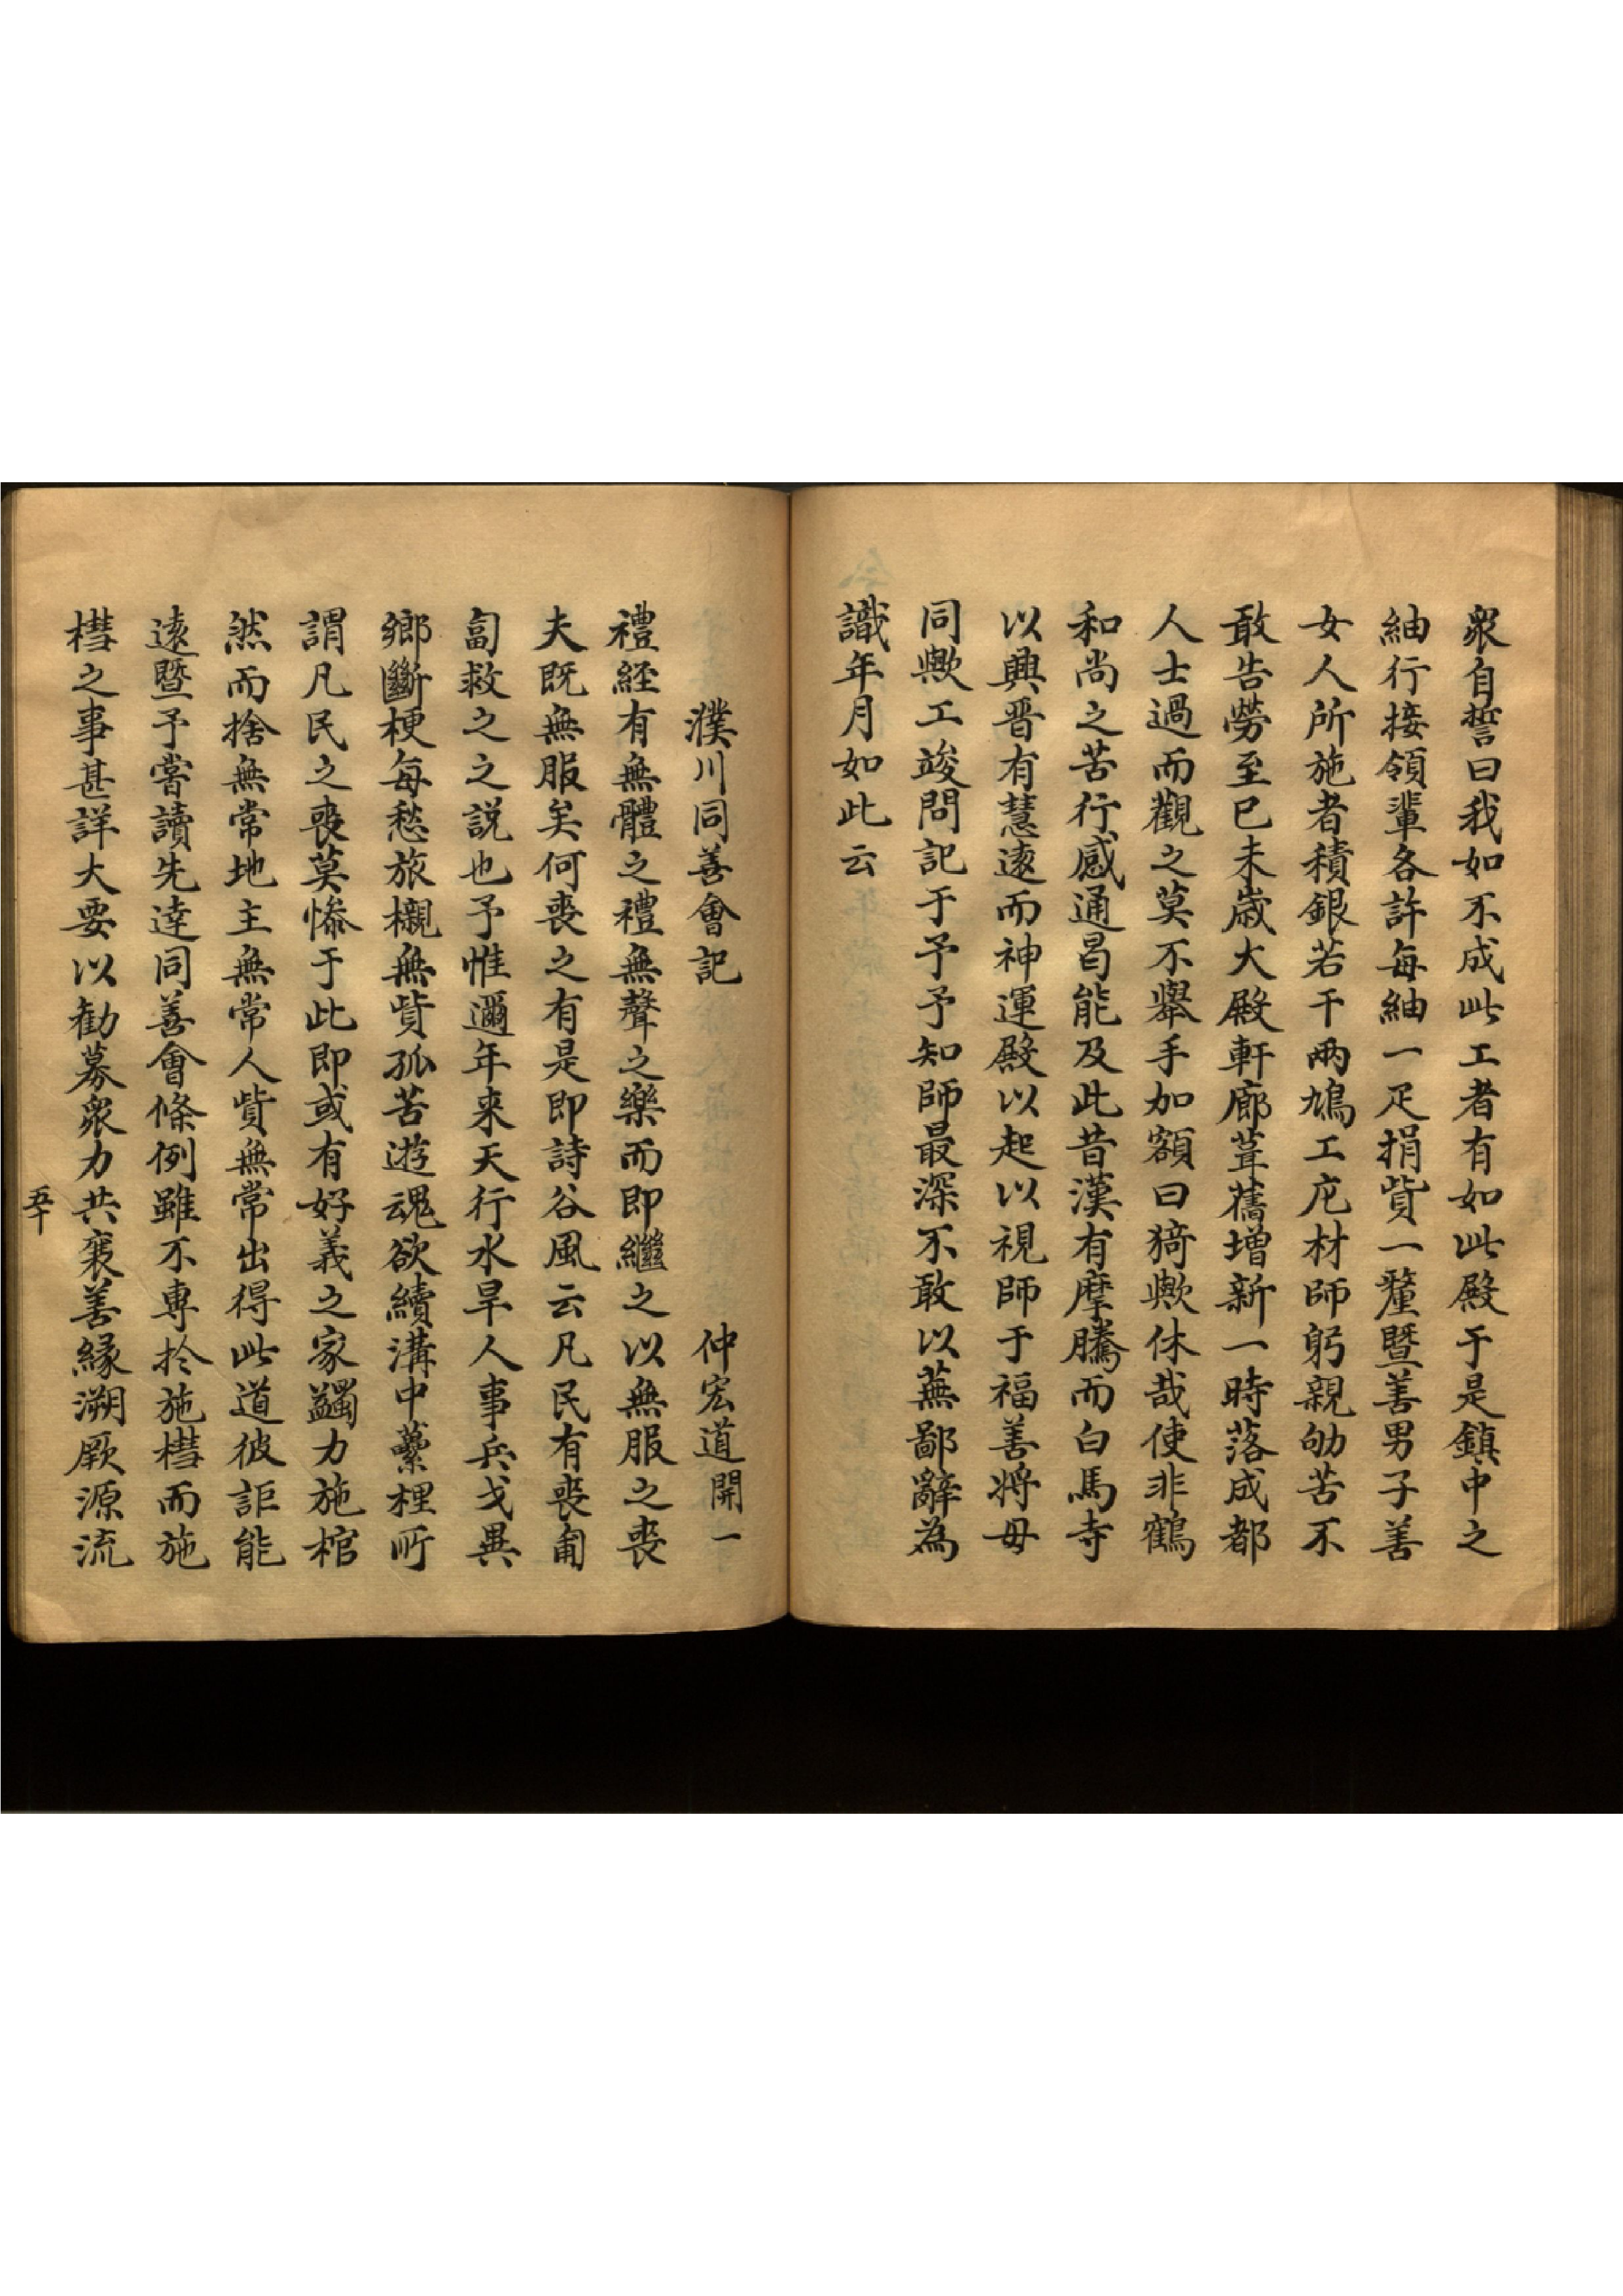 衆自誓曰我如不成此工者有如此殿于是鎮中之
紬行接領軰各許每紬一疋捐貲一釐暨善男子善
女人所施者積銀若干兩鳩工庀材師躬親劬苦不
敢告勞至巳未歲大殿軒廊葺舊增新一時落成都
人士過而觀之莫不舉手加額曰猗歟休哉使非鶴
和尚之苦行感通曷能及此昔漢有摩騰而白馬寺
以興晋有慧遠而神運殿以起以視師于福善將毋
同歟工竣問記于予予知師最深不敢以蕪鄙辭為
識年月如此云
濮川同善會記　仲宏道開一
禮経有無體之禮無聲之樂而即繼之以無服之喪
夫既無服矣何喪之有是即詩谷風云凡民有喪匍
匐救之之説也予惟邇年来天行水旱人事兵戈異
鄉斷梗每愁旅櫬無貲孤苦遊魂欲續溝中虆梩所
謂凡民之喪莫慘于此即或有好義之家蠲力施棺
然而捨無常地主無常人貲無常出得此道彼詎能
遠暨予嘗讀先達同善會條例雖不專扵施槥而施
槥之事甚詳大要以勸募衆力共襄善緣溯厥源流
五十